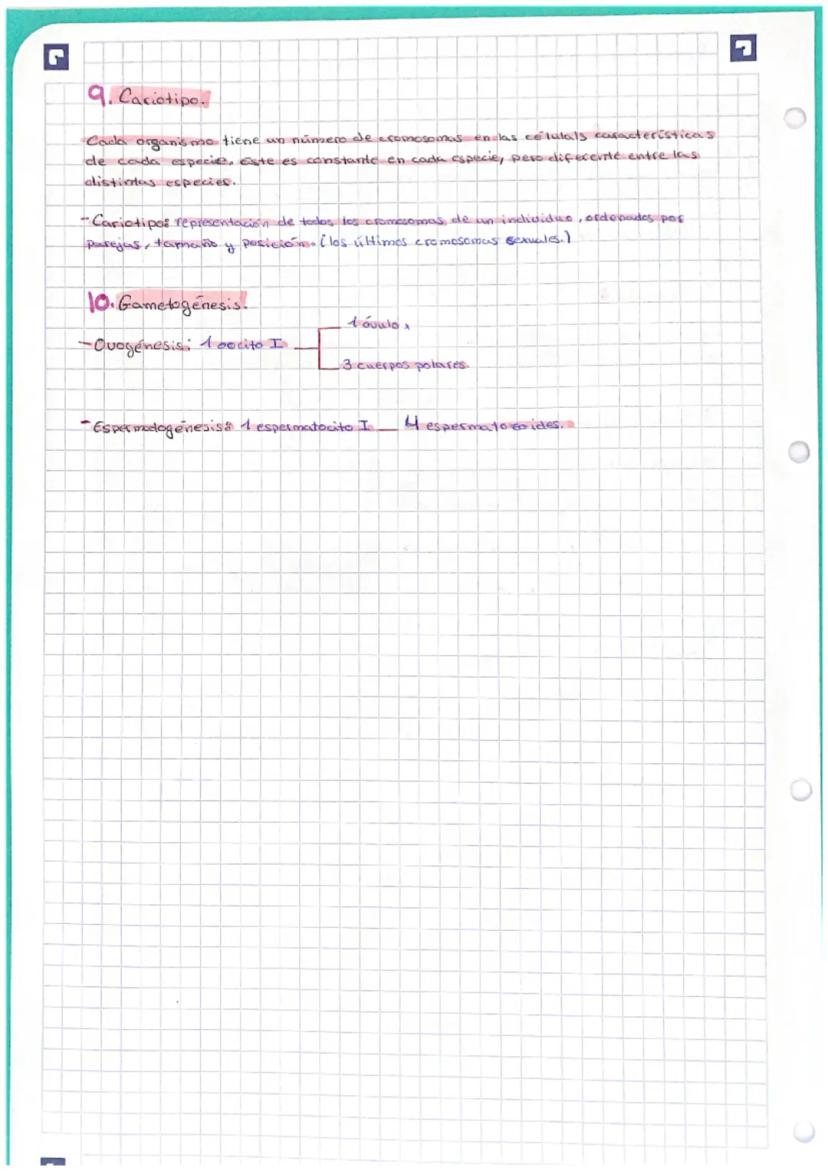 9. Cariotipo.
Cada organismo tiene un número de cromosomas en las célulals características
de cada especie, éste es constante en cada especie, pero diferente entre las
distintas especies.
-Cariotipo: representación de todos los cromosomas de un individuo, ordenados por
parejas, tamaño y posición. (los últimos cromosomas sexuales.)
10. Gametogénesis.
1 óvulo.
-Ovogénesis: 1 oocito I
3 cuerpos polares
-Espermatogénesis: 1 espermatocito I — 4 espermatozoides.